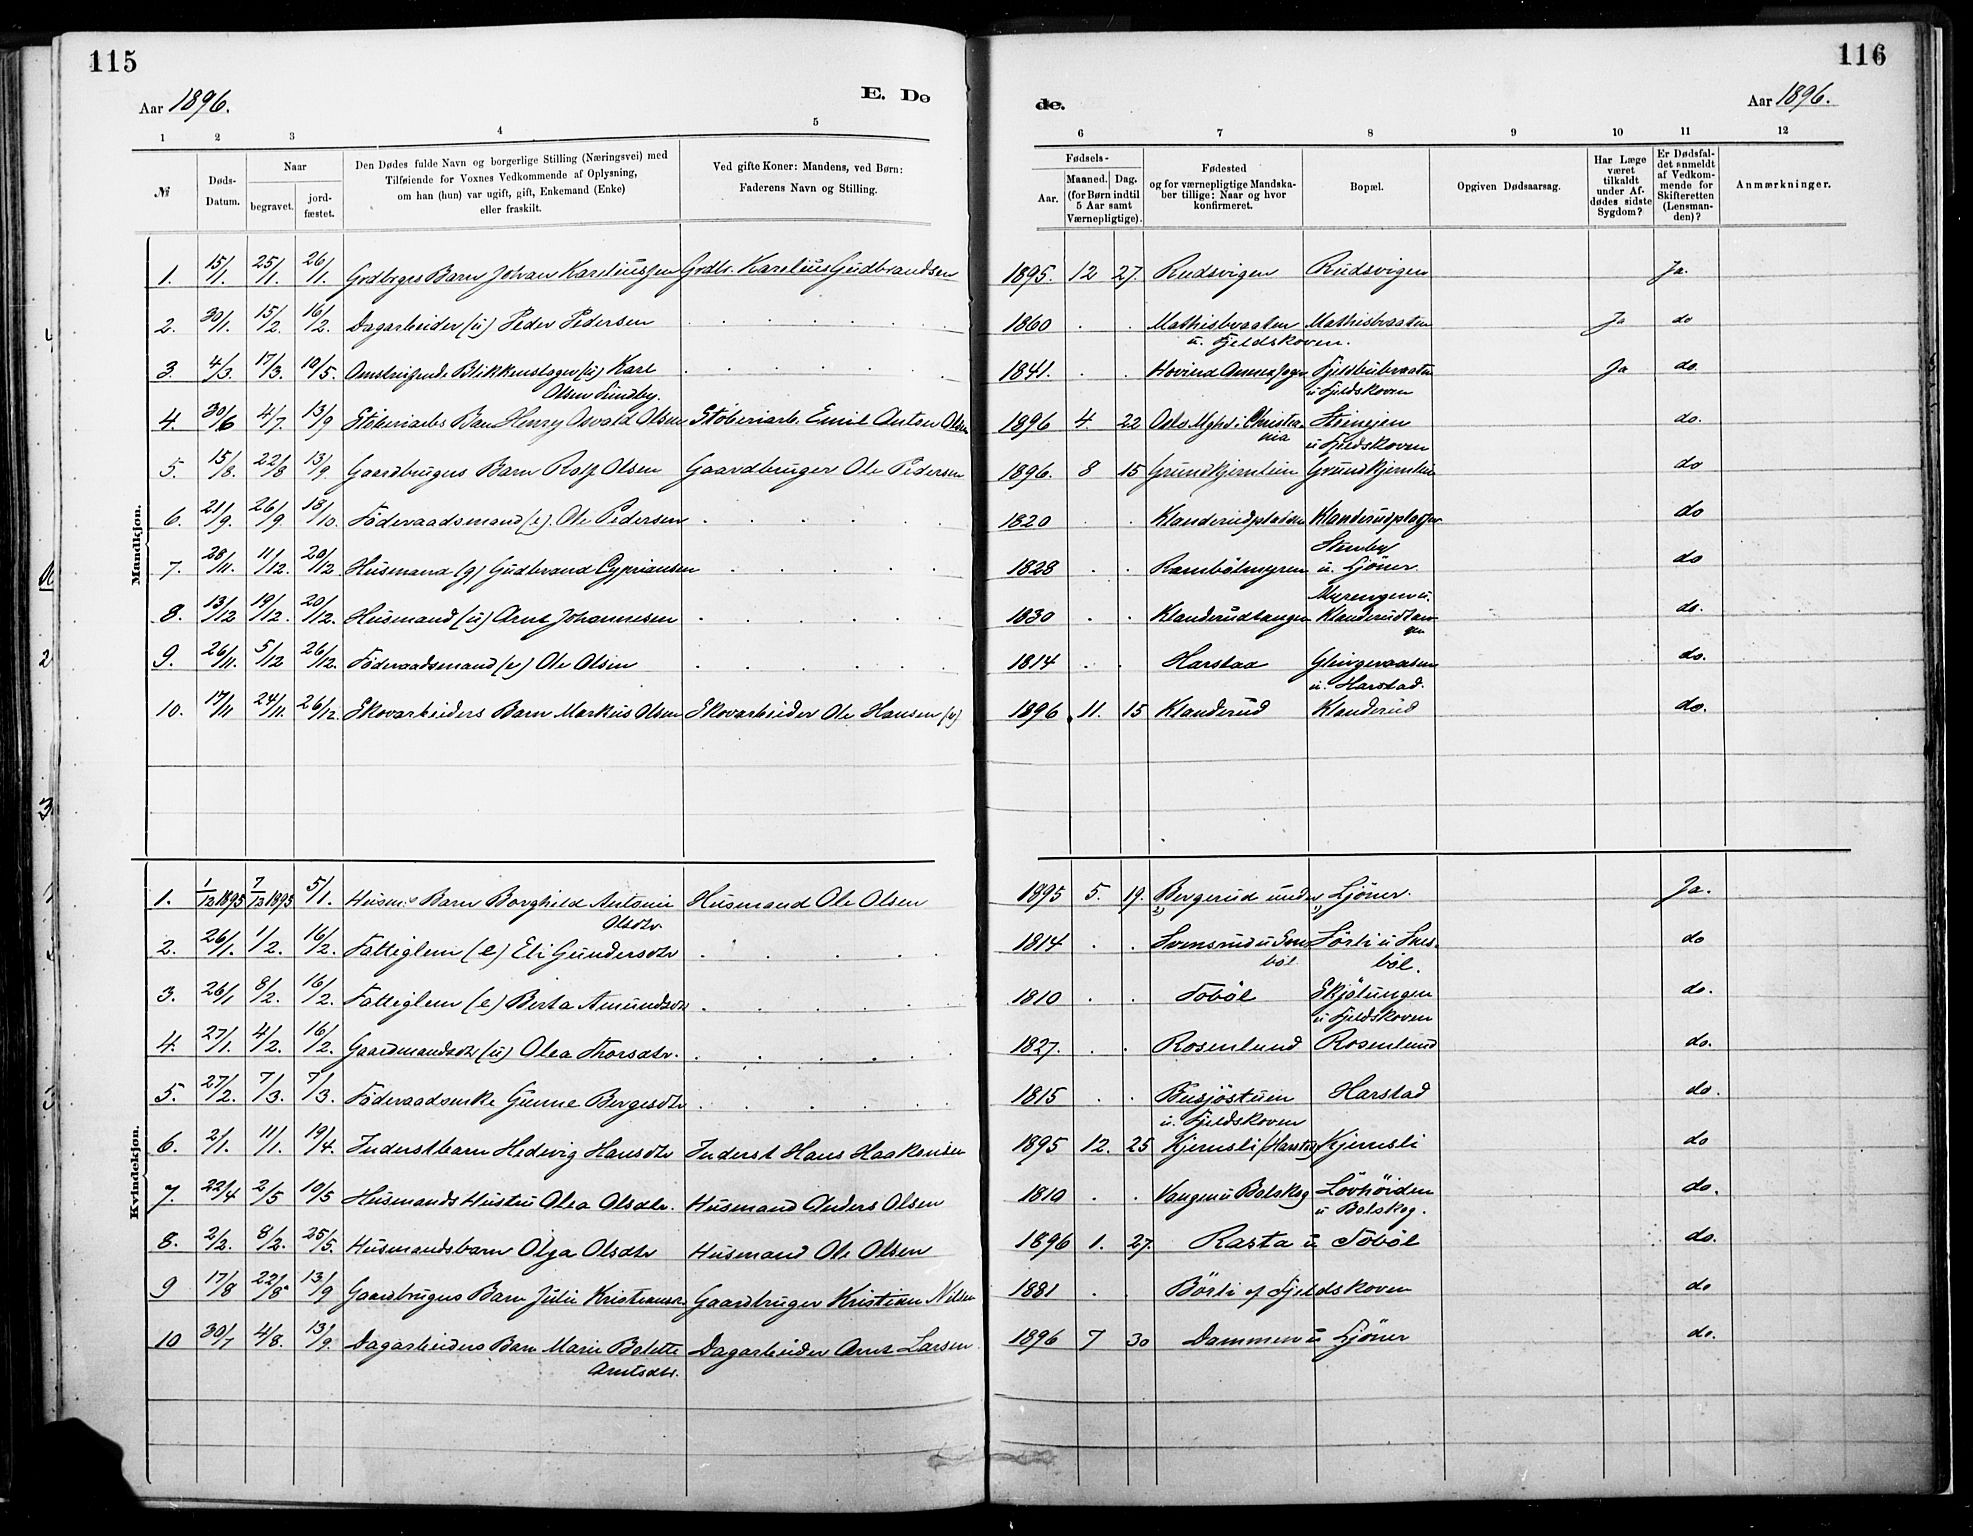 115
116
Aar 1896.
E. Dø
de.
Aar 1896.
1 2 3 4 5
6 7 8 9 10 11 12
№
Døds-Datum.
Naar
begravet.
jord-fæstet.
Den Dødes fulde Navn og borgerlige Stilling (Næringsvei) med
Tilføiende for Voxnes Vedkommende af Oplysning,
om han (hun) var ugift, gift, Enkemand (Enke)
eller fraskilt.
Ved gifte Koner: Mandens, ved Børn:
Faderens Navn og Stilling.
Fødsels-
Aar.
Maaned. Dag.
(for Børn indtil
5 Aar samt
Værnepligtige).
Fødested
og for værnepligtige Mandska-
ber tillige: Naar og hvor
konfirmeret.
Bopæl.
Opgiven Dødsaarsag.
Har Læge
været
tilkaldt
under Af-
dødes sidste
Sygdom?
Er Dødsfal-
det anmeldt
af Vedkom-
mende for
Skifteretten
(Lensman-
den)?
Anmærkninger.
Mandkjøn.
1. 15/1. 25/1. 26/1. Grdbrgers Barn Johan Kareliussen Grdbr. Karelius Gudbrandsen 1895. 12 27. Rudsvigen Rudsvigen Ja.
2. 30/1. 15/2. 16/2. Dagarbeider (u) Peder Pedersen 1860 Mathisbraaten Mathisbraaten Ja do
u. Fjeldskoven.
3. 4/3. 17/3. 10/5. Omstreifende Blikkenslager (u) Karl 1841. Hovind Ja do
Olsen Sundby. u Fjeldskoven
4. 30/6 4/7. 13/9 Støberiarbs Barn Henry Osvald Olsen Støberiarb. Emil Anton Olsen 1896 4. 22 Oslo Mghd. i Christia- do.
nia u Fjeldskoven
5. 15/8. 22/8 13/9. Gaardbrugers Barn Rolf Olsen Gaardbruger Ole Pedersen 1896. 8 15 Grundkjernlien Grundkjernlien do
6. 21/9. 26/9 18/10. Föderaadsmand (e). Ole Pedersen 1820 Klanderudpladsen Klanderudpladsen do
7. 28/11. 11/12. 20/12 Husmand (g) Gudbrand Cypriansen 1828 Rambölmyren Stenby u. Ljöner. do
8. 13/12 19/12. 20/12. Husmand (u) Arnt Johannesen 1830 Klanderudtangen Myrengen u. Klanderudtan- do.
gen
9. 26/11. 5/12 26/12. Föderaadsmand (e) Ole Olsen 1814 Harstad do.
u. Harstad.
10. 17/11 24/11. 26/12. Skovarbeiders Barn Markus Olsen Skovarbeider Ole Hansen (g) 1896. 11. 15 Klanderud Klanderud do.
Kvindekjøn.
1. 1/12 1895 7/12 1895 5/1. Husm.s Barn Borghild Antonie Husmand Ole Olsen 1895 5. 19. Bergerud under Ljöner. Ja.
Olsdtr
2. 26/1. 1/2. 16/2. Fattiglem (e) Eli Gundersdtr 1814 Svensrud u Snes- Sörli u Snes- do
böl. böl.
3. 26/1 8/2. 16/2. Fattiglem (e) Berta Amundsdtr 1810 Toböl Skjölungen do.
u Fjeldskoven
4. 27/1. 4/2. 16/2. Gaardmandsdtr (u) Olea Thorsdtr. 1827. Rosenlund Rosenlund do.
5. 27/2. 7/3. 7/3. Föderaadsenke Gunne Bergesdtr 1815 Busjöstuen Harstad do.
u. Fjeldskoven
6. 2/1. 11/1. 19/4. Inderstbarn Hedevig Hansdtr Inderst Hans Haakensen 1895 12. 25 Kjernsli (Harstad) Kjernsli do
7. 22/4 2/5 10/5 Husmands Hustru Olea Olsdtr. Husmand Anders Olsen 1810 Vangen u Bolskog Lövhöiden do.
u Bolskog.
8. 2/2. 8/2. 25/5. Husmandsbarn Olga Olsdtr Husmand Ole Olsen 1896 1. 27. Rasta u Toböl do.
9 17/8 22/8 13/9 Gaardbrugers Barn Julie Kristiansdtr Gaardbruger Kristian Nilsen 1881 Börli af Fjeldskoven do
10 30/7 4/8. 13/9. Dagarbeiders Barn Marie Bolette Dagarbeider Arnt Larsen 1896 7 30 Dammen u Ljöner do.
Arntsdtr.